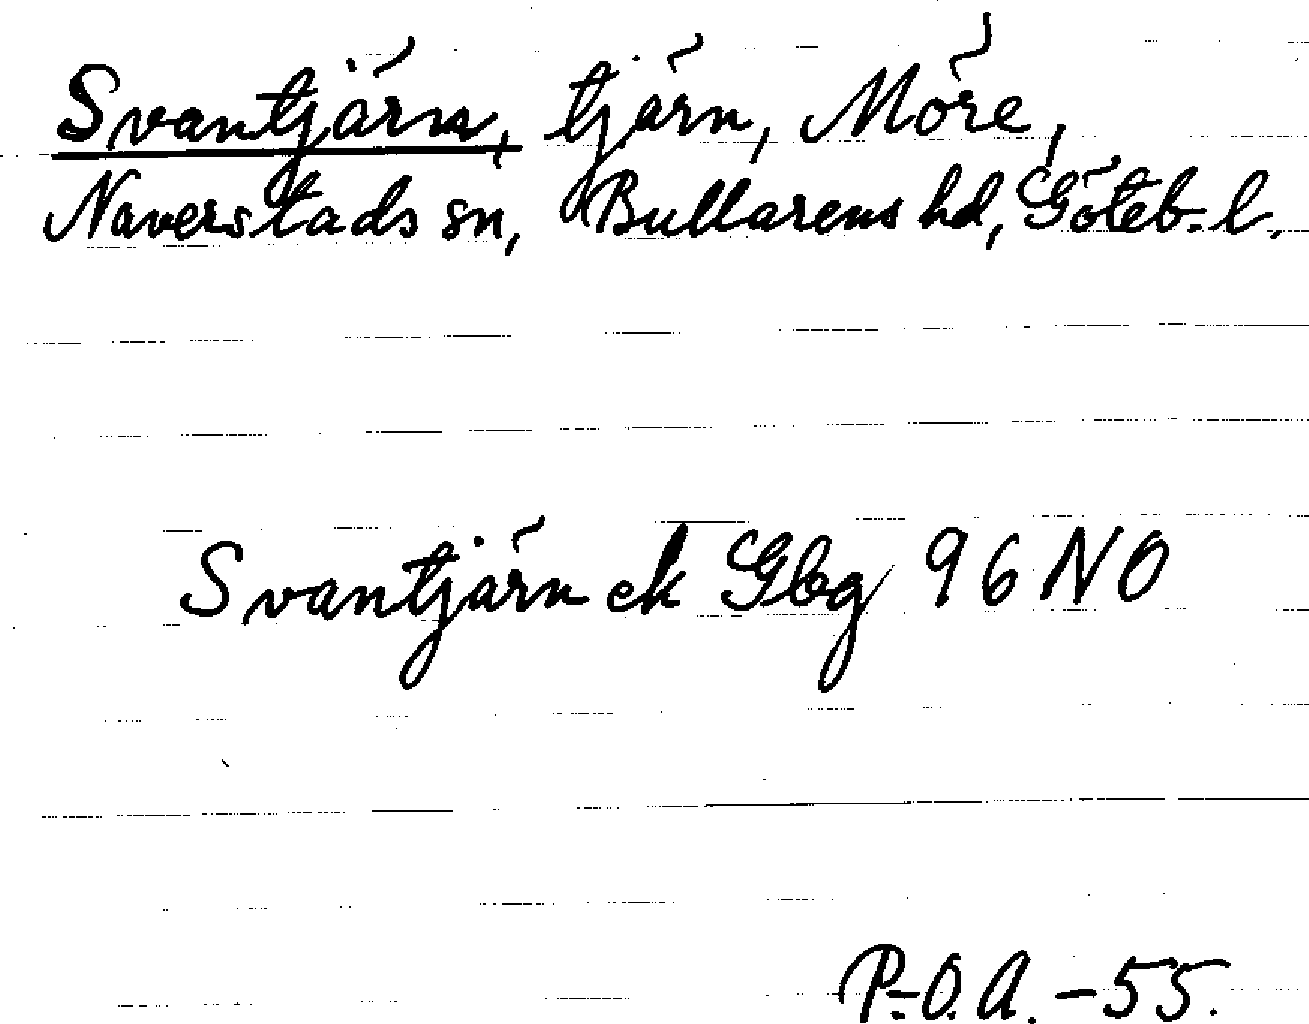 Svantjärn, tjärn, Möre,
Naverstads sn, Bullarens hd, Göteb. l.
Svantjärn ek Gbg 96 NO
P.-O. A. -55.